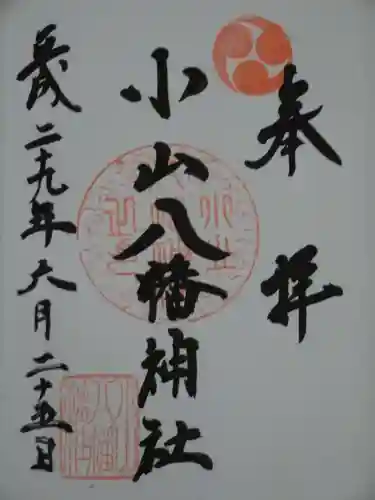 奉拝
小山八幡神社
平成二十九年六月二十五日